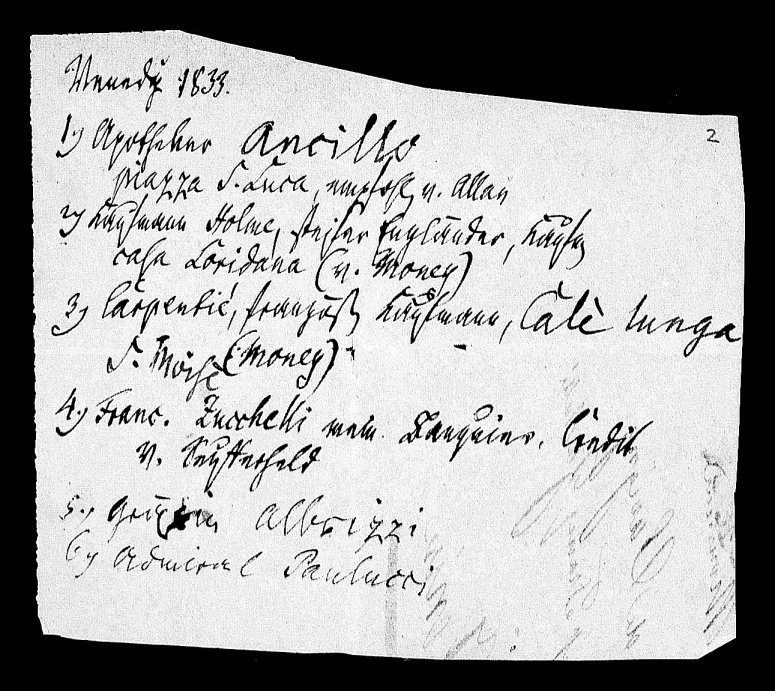 Venedig 1833.
2
1) Apotheker Ancillo
piazza S. Luca, empfohl. v. Allan
2) Kaufmann Holme, Engländer,
casa Loridana (v. Money)
3) Carpentié, französ. Kaufmann, Calè lunga
S. Moisè (Money)
4.) Franc. Zucchelli mein Banquier. Credit
v. Seufferheld
5.) Gräfin Albrizzi
6) Admiral Paulucci